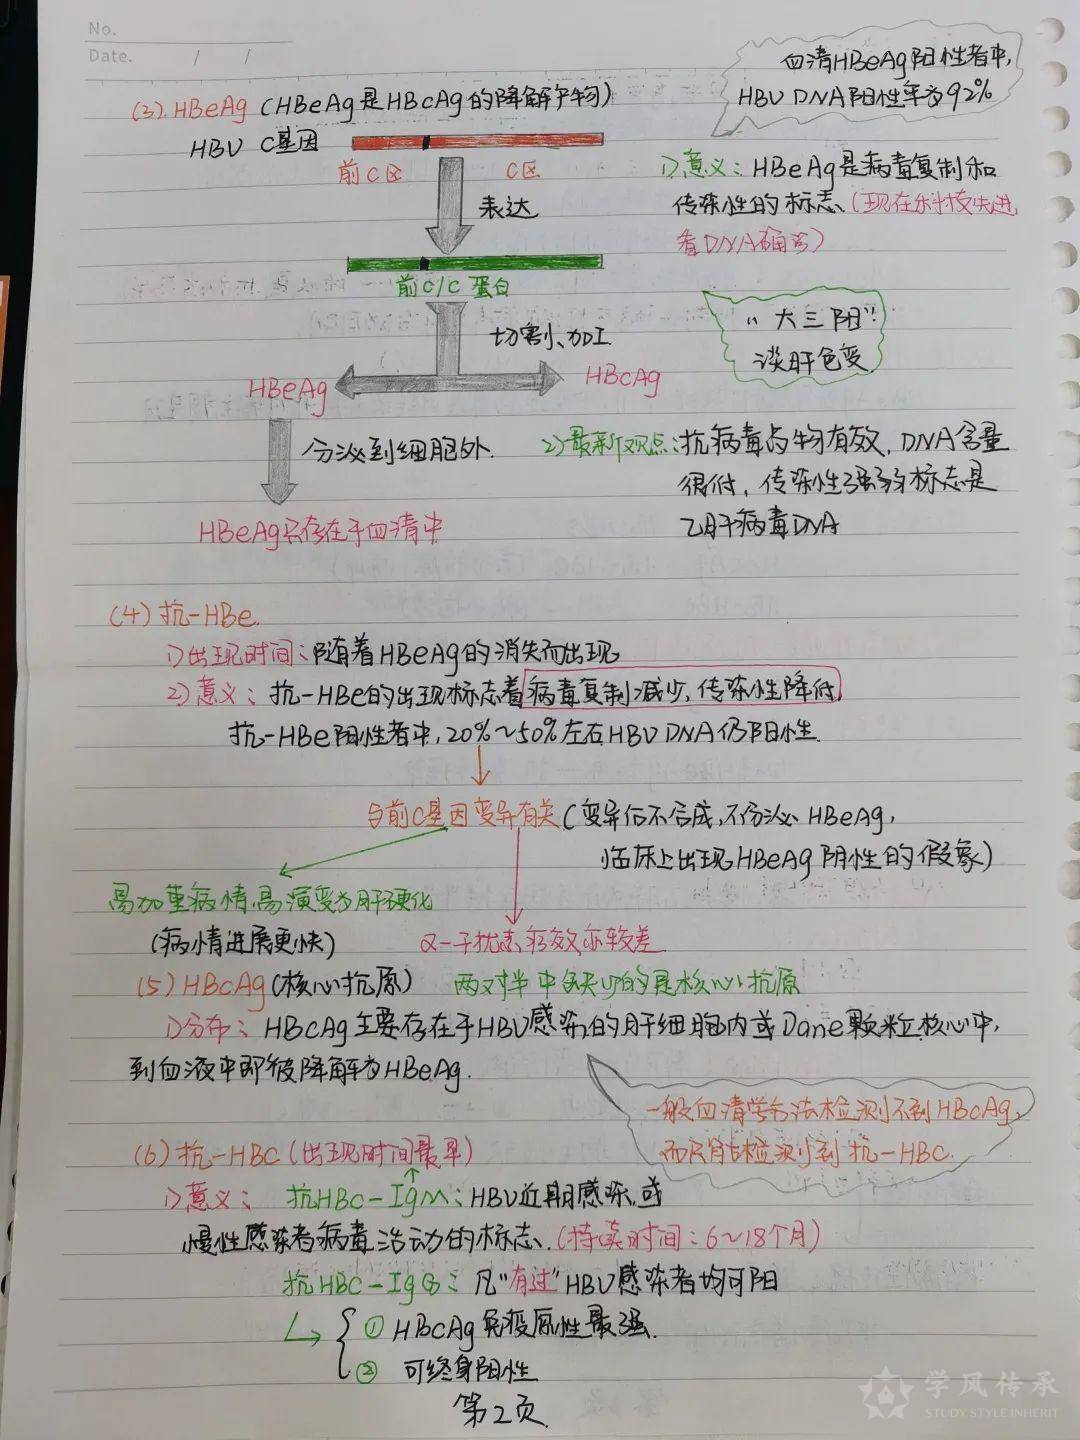 No.
Date. / /
血清HBeAg阳性者中,
HBV DNA阳性率为92%
(3). HBeAg (HBeAg是HBcAg的降解产物)
HBV C基因
前C区 C区
1)意义: HBeAg是病毒复制和
传染性的标志(现在科技先进
看DNA确否)
表达
前C/C 蛋白
"大三阳"
谈肝色变
切割、加工
HBeAg HBcAg
分泌到细胞外.
2)最新观点:抗病毒药物有效, DNA含量
很低, 传染性强弱标志是
乙肝病毒DNA
HBeAg只存在于血清中
(4) 抗-HBe
1)出现时间:随着HBeAg的消失而出现
2)意义: 抗-HBe的出现标志着病毒复制减少,传染性降低.
抗-HBe阳性者中,20%~50%左右HBV DNA仍阳性.
与前C基因变异有关(变异后不合成,不分泌 HBeAg,
临床上出现HBeAg阴性的假象)
易加重病情,易演变为肝硬化
(病情进展更快)
α-干扰素疗效亦较差
(5) HBcAg(核心抗原) 两对半中缺少的是核心抗原
1)分布: HBcAg主要存在于HBV感染的肝细胞内或Dane颗粒核心中,
到血液中即被降解为HBeAg.
一般血清学方法检测不到HBcAg,
而只能检测到抗-HBC.
(6) 抗-HBC(出现时间最早)
1)意义: 抗HBC-IgM: HBV近期感染,或
慢性感染者病毒活动的标志.(持续时间:6~18个月)
抗HBC-IgG: 凡"有过"HBV感染者均可阳
① HBcAg免疫原性最强.
② 可终身阳性
第2页
学风传承
STUDY STYLE INHERIT